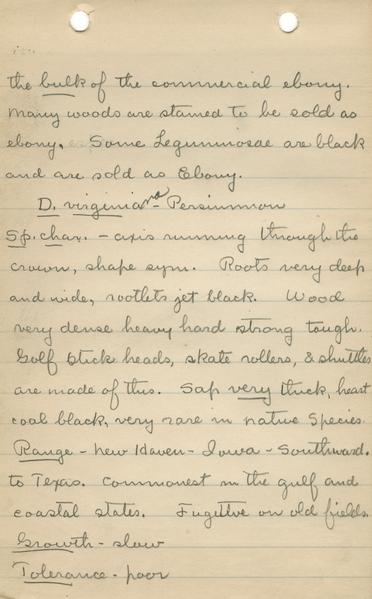 the bulk of the commercial ebony.
Many woods are stained to be sold as
ebony. Some Leguminosae are black
and are sold as Ebony.
D. virginiana - Persimmon
Sp. char. - axis running through the
crown, shape sym. Roots very deep
and wide, rootlets jet black. Wood
very dense heavy hard strong tough.
Golf stick heads, skate rollers, & shuttles
are made of this. Sap very thick, heart
coal black, very rare in native species.
Range - New Haven - Iowa - Southward.
to Texas. Commonest in the gulf and
coastal states. Fugitive on old fields.
Growth - slow
Tolerance - poor